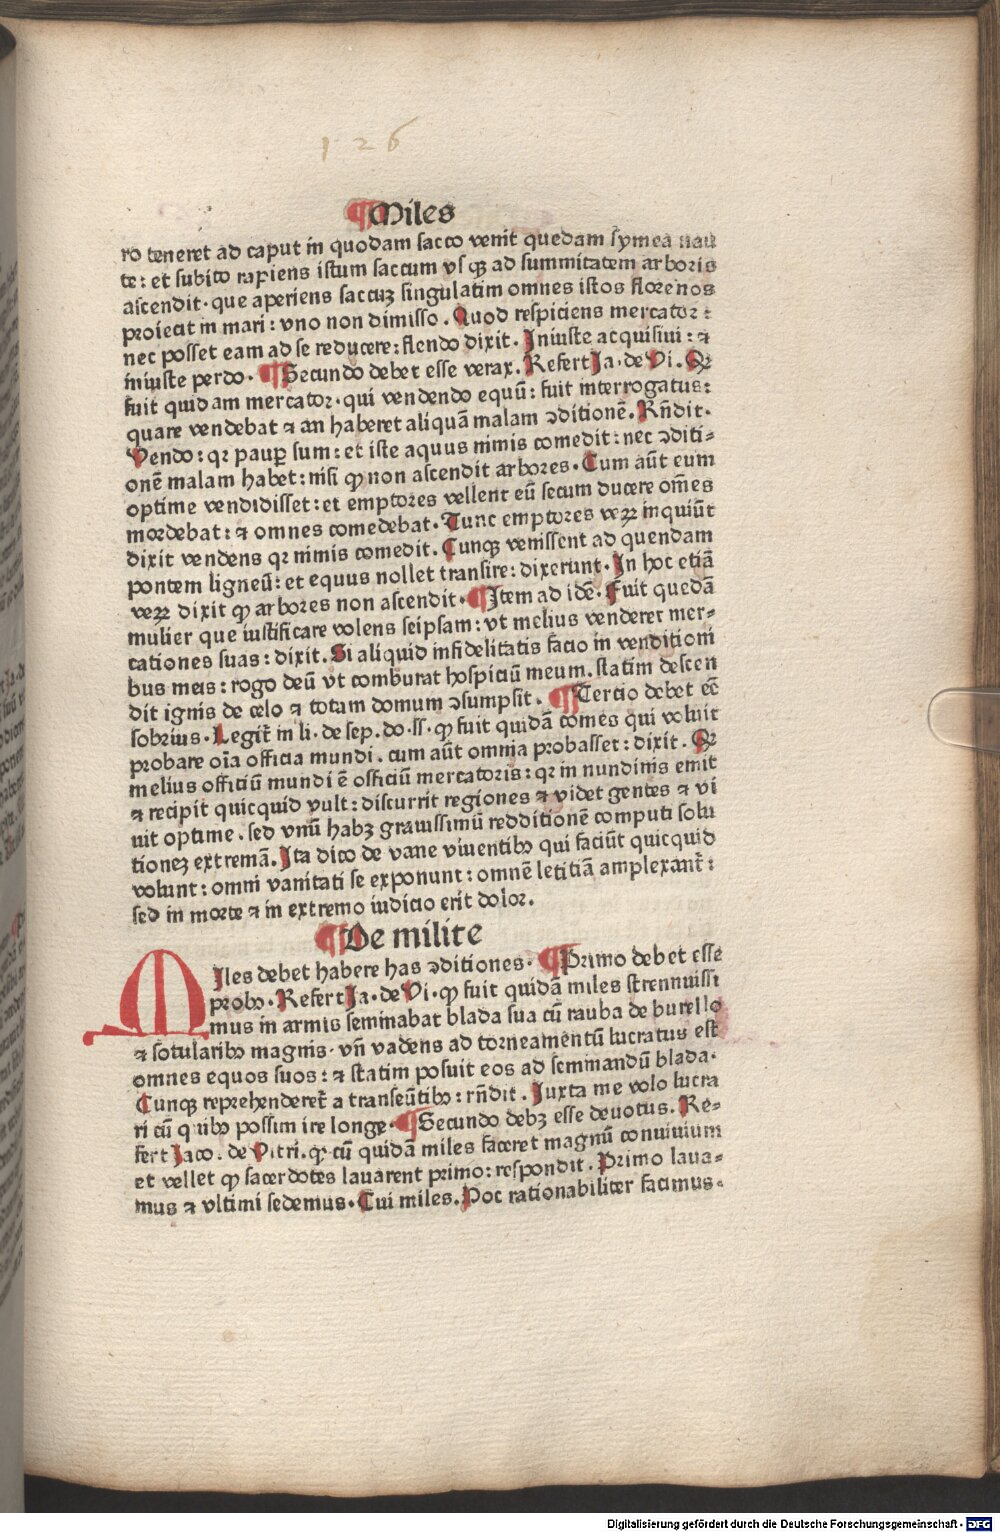 126
¶Miles
ro teneret ad caput in quodam sacco venit quedam symea nau
te: et subito rapiens istum saccum vsqꝫ ad summitatem arboris
ascendit. que aperiens saccuꝫ singulatim omnes istos florenos
proiecit in mari: vno non dimisso. Quod respiciens mercator:
nec posset eam ad se reducere: flendo dixit. Iniuste acquisiui: ⁊
iniuste perdo. ¶Secundo debet esse verax. Refert Ja. de Vi. Qꝛ
fuit quidam mercator. qui vendendo equū: fuit interrogatus:
quare vendebat ⁊ an haberet aliquā malam ↄditionē. Rñdit.
Vendo: qꝛ pauꝑ sum: et iste aquus nimis comedit: nec ↄditi-
onē malam habet: nisi ꝙ non ascendit arbores. Cum aūt eum
optime vendidisset: et emptores vellent eū secum ducere om̄es
mordebat: ⁊ omnes comedebat. Tunc emptores veꝝ inquiūt
dixit vendens qꝛ nimis comedit. Cunqꝫ venissent ad quendam
pontem ligneū: et equus nollet transire: dixerunt. In hoc etiā
veꝝ dixit ꝙ arbores non ascendit. ¶Item ad idē. Fuit quedā
mulier que iustificare volens seipsam: vt melius venderet mer-
cationes suas: dixit. Si aliquid infidelitatis facio in venditioni
bus meis: rogo deū vt comburat hospiciū meum. statim descen
dit ignis de celo ⁊ totam domum ↄsumpsit. ¶Tercio debet eē
sobrius. Legit̄ in li. de sep. do. ss. ꝙ fuit quidā comes qui voluit
probare oīa officia mundi. cum aūt omnia probasset: dixit. Qꝛ
melius officiū mundi ē officiū mercatoris: qꝛ in nundinis emit
⁊ recipit quicquid vult: discurrit regiones ⁊ videt gentes ⁊ vi
uit optime. sed vnū habꝫ grauissimū redditionē computi solu
tioneꝫ extremā. Ita dico de vane viuentibꝰ qui faciūt quicquid
volunt: omni vanitati se exponunt: omnē letitiā amplexant̄:
sed in morte ⁊ in extremo iudicio erit dolor.
¶De milite
MIles debet habere has ↄditiones. ¶Primo debet esse
probꝰ. Refert Ja. de Vi. ꝙ fuit quidā miles strennuissi
mus in armis seminabat blada sua cū rauba de burello
⁊ sotularibꝰ magnis. vñ vadens ad torneamentū lucratus est
omnes equos suos: ⁊ statim posuit eos ad seminandū blada.
Cunqꝫ reprehenderet̄ a transeūtibꝰ: rñdit. Juxta me volo lucra
ri cū quibꝰ possim ire longe. ¶Secundo debꝫ esse deuotus. Re-
fert Jaco. de Vitri. ꝙ cū quidā miles faceret magnū conuiuium
et vellet ꝙ sacerdotes lauarent primo: respondit. Primo laua-
mus ⁊ vltimi sedemus. Cui miles. Hoc rationabiliter facimus.
Digitalisierung gefördert durch die Deutsche Forschungsgemeinschaft - DFG